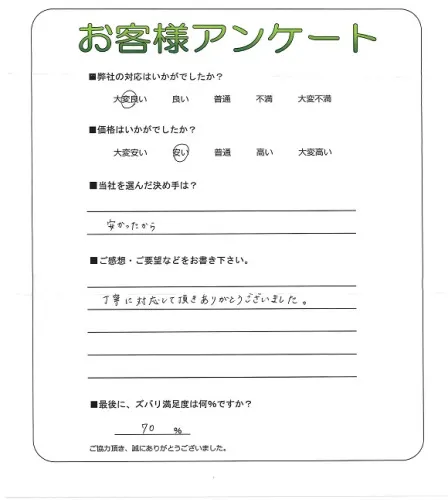 お客様アンケート
■弊社の対応はいかがでしたか？
大変良い 良い 普通 不満 大変不満
■価格はいかがでしたか？
大変安い 安い 普通 高い 大変高い
■当社を選んだ決め手は？
安かったから
■ご感想・ご要望などをお書き下さい。
丁寧に対応して頂きありがとうございました。
■最後に、ズバリ満足度は何%ですか？
70 %
ご協力頂き、誠にありがとうございました。